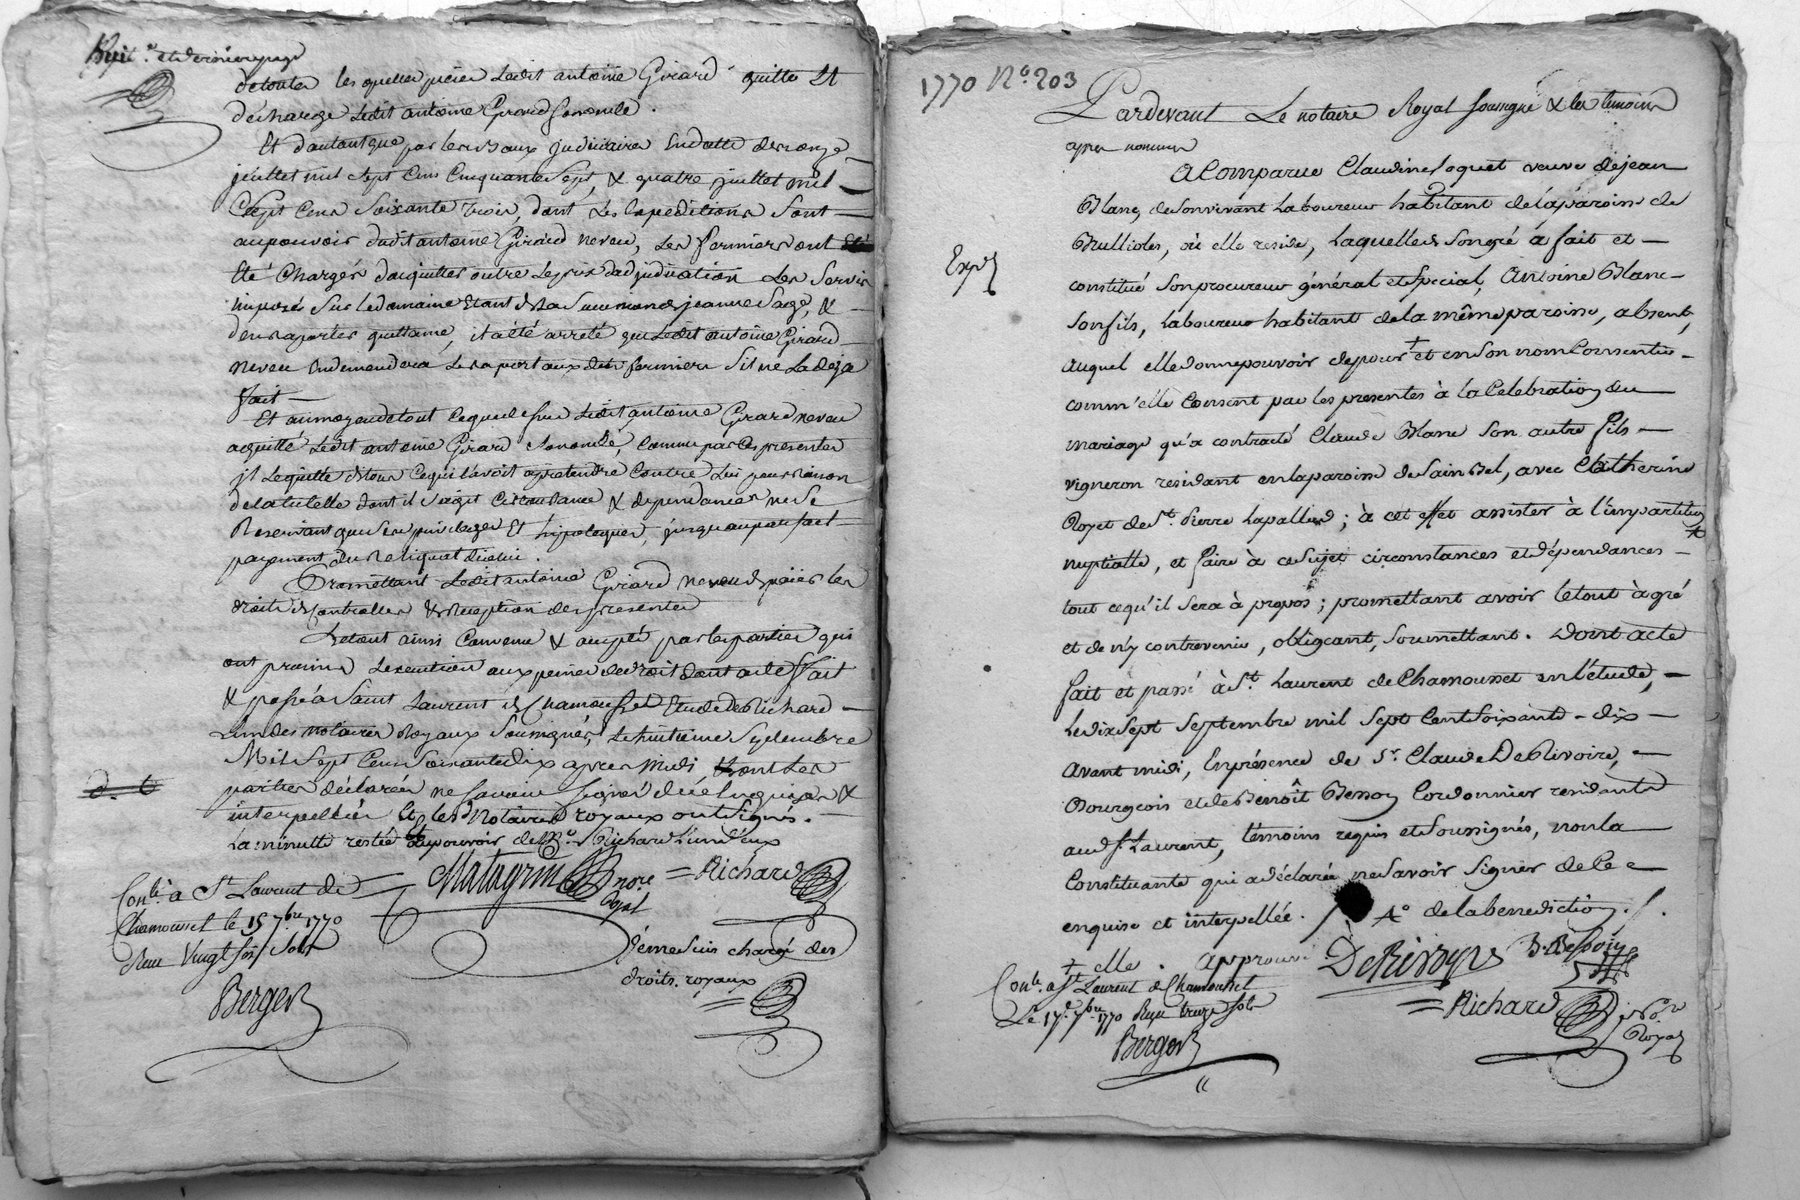 Huit.e et dernière page
detoutes les quelles pièces Ledit antoine Girard quitte et
décharge Ledit antoine Girard Sononcle.
Et d'autantque par les deux judiciaires Endatte des onze
juillet mil Sept Cens Cinquante Sept, & quatre juillet mil
Sept Cens Soixante trois, dont Les Expeditions Sont
aupouvoir dudit antoine Girard neveu, Les fermiers ont
Eté Chargés dacquitter outre Leprix dadjudication Les Servis
imposés Sur Ledomaine Etant de la Succession de jeanne Sage, &
den raporter quittance, il a été arreté que Ledit antoine Girard
neveu Endemandera Le raport auxdits fermiers Sil ne La deja
fait
Et aumoyen de tout Ceque dessus Ledit antoine Girard neveu
acquitté Ledit antoine Girard Sononcle, Comme par Ces presentes
jl Lequitte de tout Cequil avoit apretendre Contre Lui pour raison
de la tutelle dont il Sagit Circonstances & dependances ne Se
Reservant que Ses privileges Et hipoteques, jusquau parfait
payement du Reliquat
Promettant Ledit antoine Girard neveu de paier les
droits de Controlle & Reception des presentes
Letout ainsi Convenu & accepté par les parties qui
ont promis Lexecution aux peines de droit Dont acte Fait
& passé a Saint Laurent de Chamousset Etude De Richard
Lun des notaires Royaux Soussignés, Le huitieme Septembre
Mil Sept Cens Soixante dix apres Midi, Les
parties déclarées ne Savoir Signer de ce Enquises &
interpellées Et Les Notaires royaux ont Signés.
La minutte restée aupouvoir de Me. Richard L'un d'eux
Matagrin nore Royal = Richard
Conlé. a St Laurent de
Chamousset le 15 7bre 1770
Reçu Vingt Six Sols
Berger
déme Suis chargé des
droits royaux
1770 No. 203
Pardevant Le notaire Royal soussigné & les temoins
après nommés
A Comparue Claudine Joquet veuve de jean
Blanc de Sonvivant Laboureur habitant de la paroisse de
Brullioles, où elle reside, Laquelle de Songré a fait et
constitué Son procureur général et Special, Antoine Blanc
Son fils, Laboureur habitant de la même paroisse, absent,
auquel elle donne pouvoir de pour + et en Son nom Consentir
comm'elle Consent par les presentes à la Celebration du
mariage qu'a contracté Claude Blanc Son autre fils
vigneron residant en la paroisse de Sain Bel, avec Catherine
Royet de St. Pierre Lapallud; à cet effet assister à l'impartition
nuptialle, et faire à ce Sujet circonstances et dépendances
tout ce qu'il Sera à propos; promettant avoir le tout à gré
et de n'y contrevenir, obligeant, Soumettant. Dont acte
fait et passé à St. Laurent de Chamousset en l'étude,
Le dix Sept Septembre mil Sept Cent Soixante-dix
avant midi, En présence de Sr. Claude De Rivoire,
Bourgeois et de Benoît Besson Cordonnier residants
aud. St. Laurent, témoins requis et Soussignés, non la
Constituante qui a déclaré ne Savoir Signer de Ce
enquise et interpellée. Ao de la benediction
+ elle. approuvé De Rivoyre B. Besson
= Richard No.re Royal
Conlé. a St Laurent de Chamousset
Le 17e. 7bre 1770 Reçu treize Sols
Berger
Expé